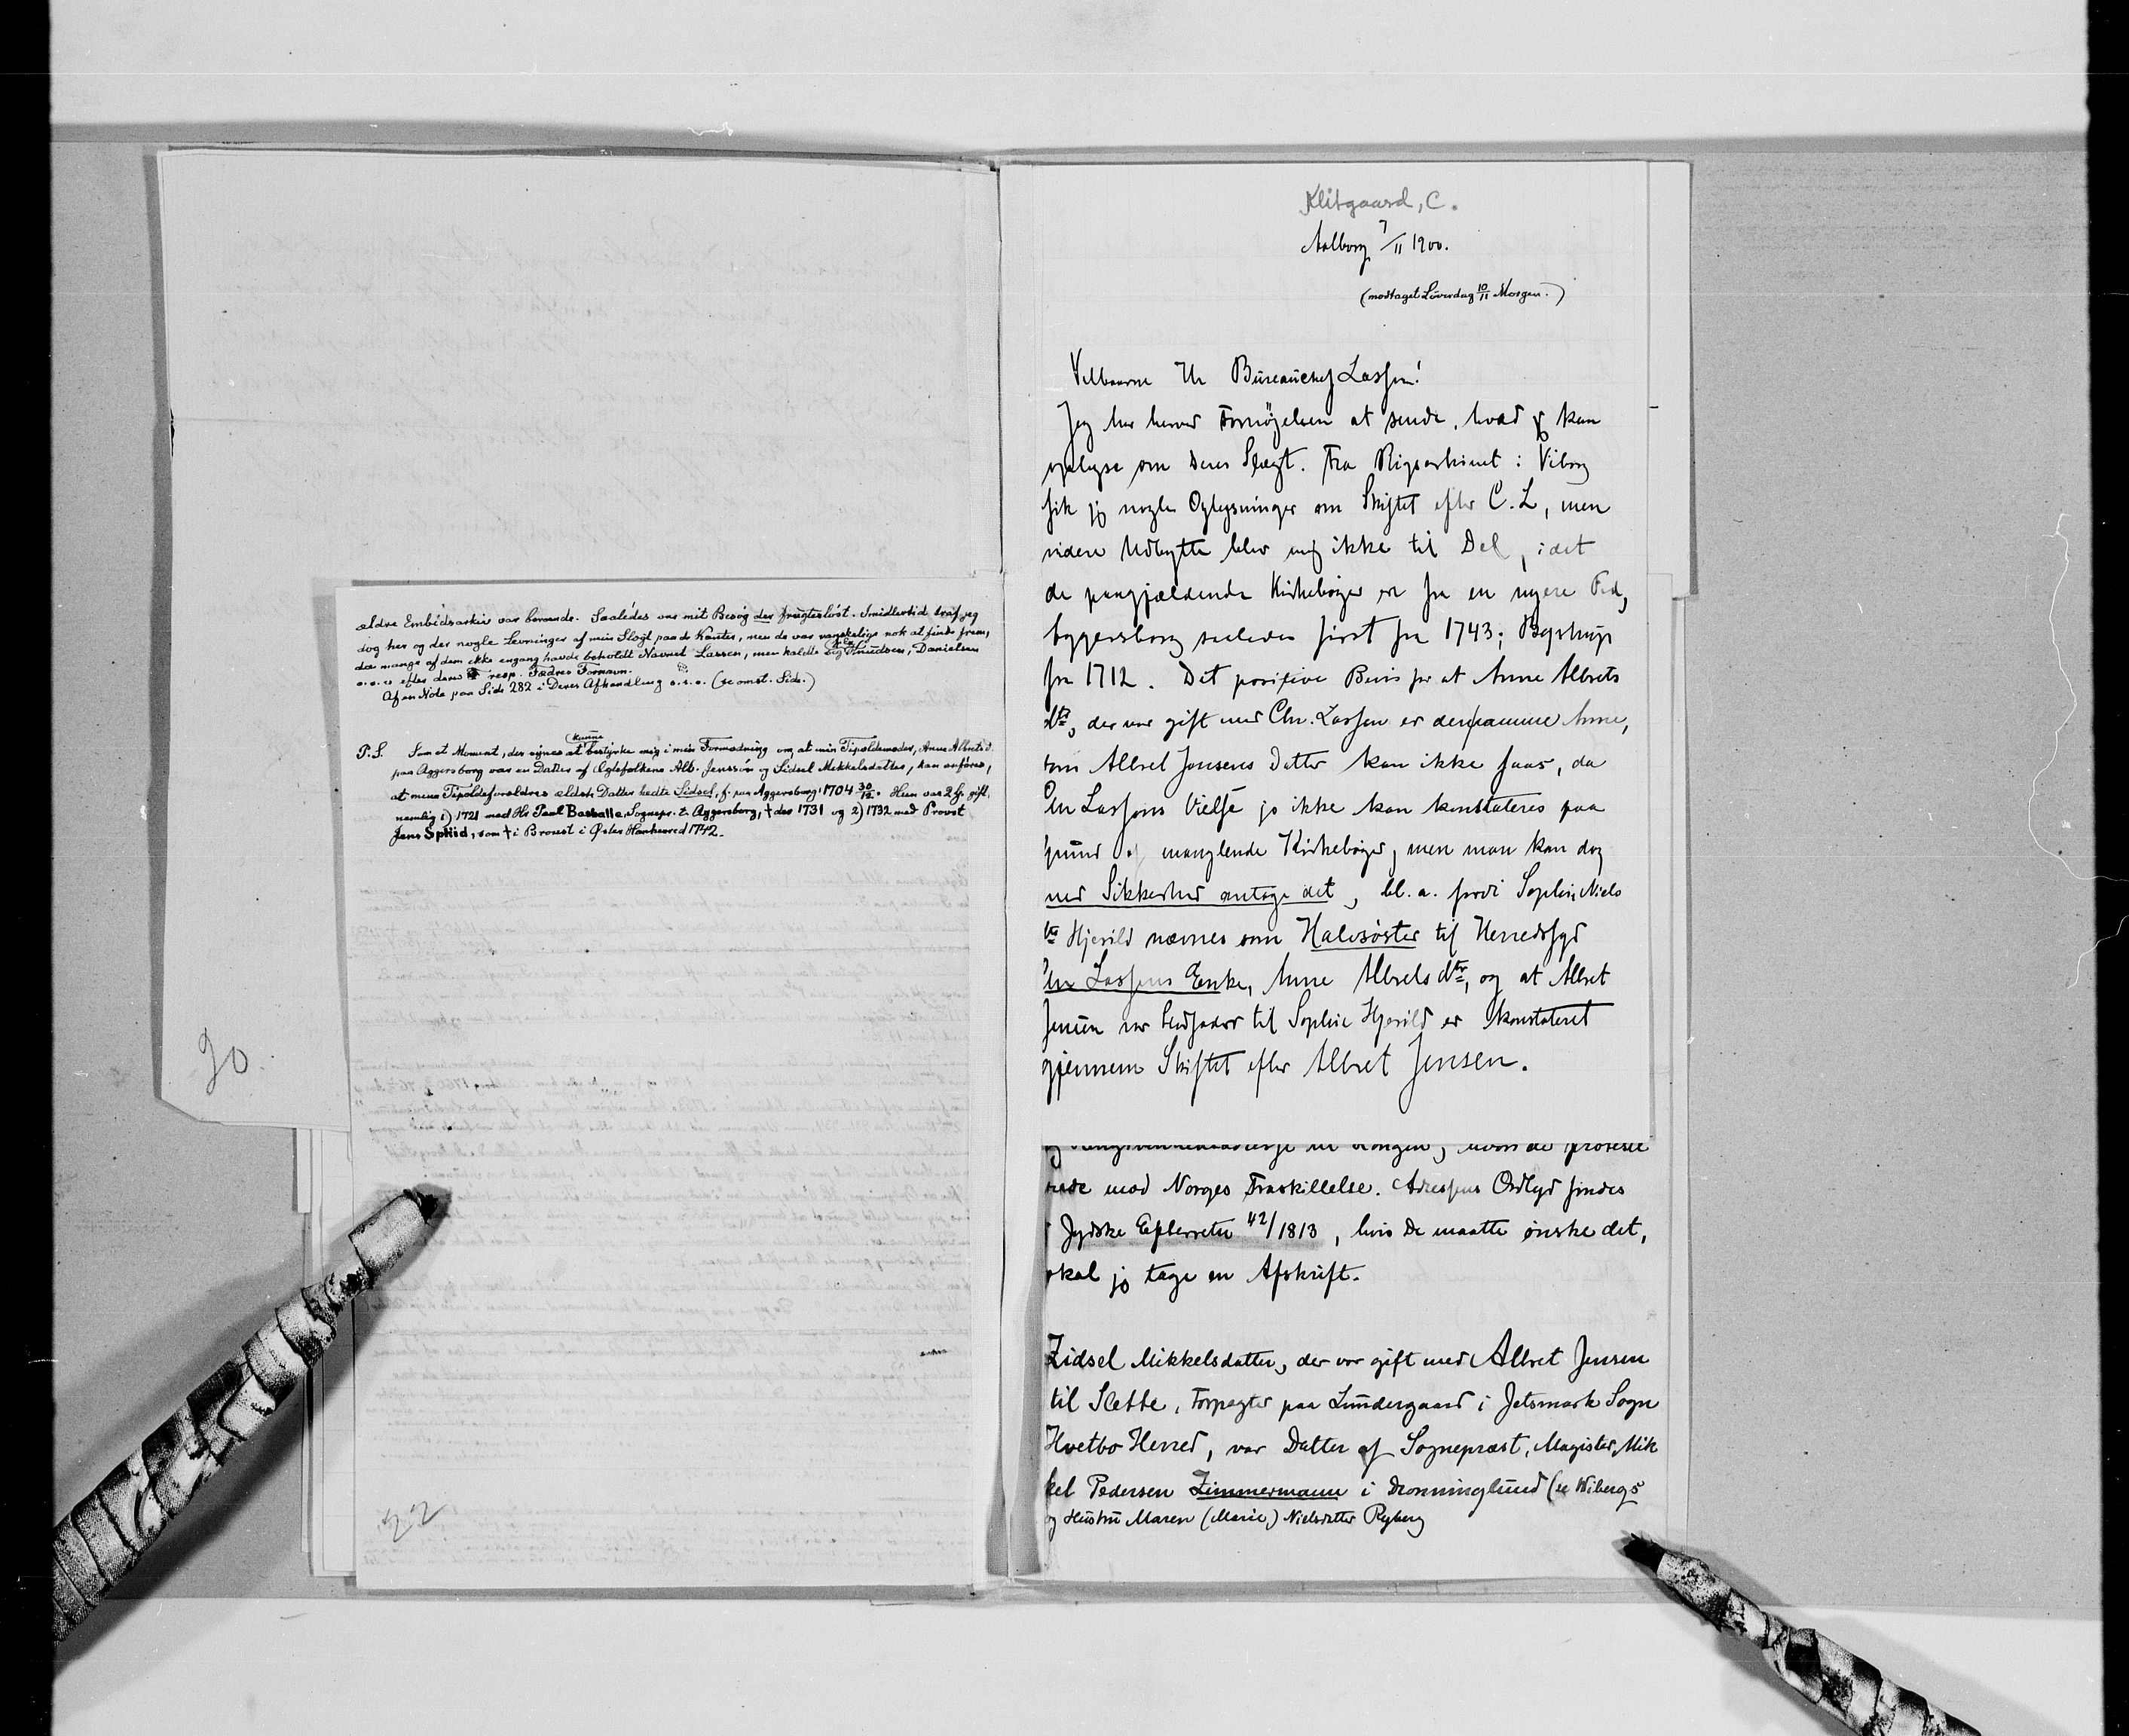 ældre Embedsarkiv var bevarede. Saaledes var mit Besøg der frugtesløst. Imidlertid traf jeg
dog her og der nogle Levninger af min Slægt paa de Kanter, men de var vanskelige nok at finde frem,
da mange af dem ikke engang havde beholdt Navnet Lassen, men kaldte sig Knudsen, Danielsen
o.s.v. efter deres resp. Fædres Fornavn.
Af en Note paa Side 282 i Deres Afhandling o.s.v. (se omst. Side.)
P.S. Som et Moment, der synes at kunne bestyrke mig i min Formodning om, at min Tipoldemoder, Anne Albretsd.
paa Aggersborg var en Datter af Ægtefolkene Alb. Jenssøn og Sidsel Mikkelsdatter, kan anføres,
at mine Tipoldeforældres ældste Datter hedte Sidsel, f. paa Aggersborg 1704 30/12. Hun var 2 G. gift,
nemlig 1) 1721 med Hr Poul Basballe, Sognepr. t. Aggersborg, † der 1731 og 2) 1732 med Provst
Jens Spliid, som † i Brovst i Øster Hanherred 1742.
20.
22
Klitgaard, C.
Aalborg 7/11 1900.
(modtaget Löverdag 10/11 Morgen.)
Velbaarne Hr Bureauchef Lassen!
Jeg har herved Fornøjelsen at sende, hvad jeg kan
oplyse om Deres Slægt. Fra Rigsarkivet i Viborg
fik jeg nogle Oplysninger om Skiftet efter C. L, men
videre Udbytte blev mig ikke til Del, idet
de paagjældende Kirkebøger er fra en nyere Tid,
Aggersborg saaledes først fra 1743; Bejstrup
fra 1712. Det positive Bevis for at Anne Albrets
dtr, der var gift med Chr. Lassen er den samme Anne,
som Albret Jensens Datter kan ikke faas, da
Chr Lassens Vielse jo ikke kan konstateres paa
Grund af manglende Kirkebøger, men man kan dog
med Sikkerhed antage det, bl. a. fordi Sophie Niels
dtr Hjerild nævnes som Halvsøster til Herredsfgd
Chr Lassens Enke, Anne Albrets dtr, og at Albret
Jensen var Stedfader til Sophie Hjerild er konstateret
gjennem Skiftet efter Albret Jensen.
rede mod Norges Fraskillelse. Adressens Ordlyd findes
i Jydske Efterretn 42/1813, hvis De maatte ønske det,
skal jeg tage en Afskrift.
Zidsel Mikkelsdatter, der var gift med Albret Jensen
til Slette, Forpagter paa Lundergaard i Jetsmark Sogn
Hvetbo Herred, var Datter af Sognepræst, Magister Mik
kel Pedersen Zimmermann i Dronninglund (se Wibergs
og Hustru Maren (Marie) Nielsdatter Ryberg